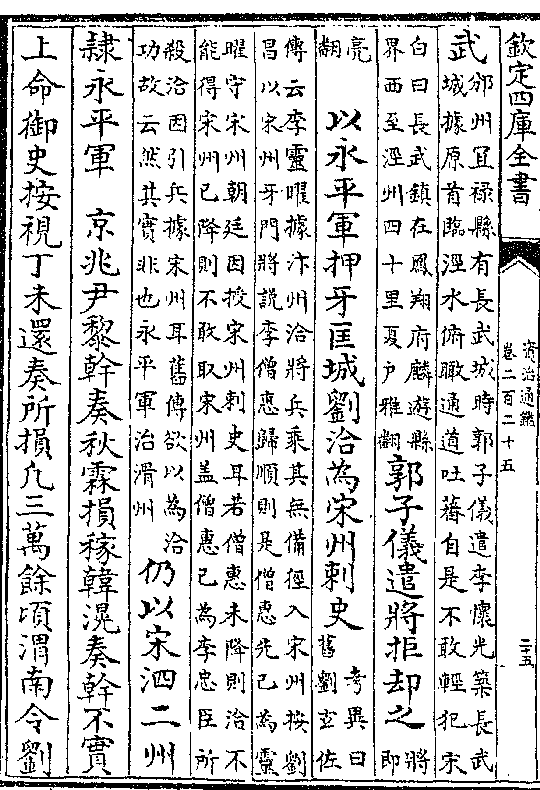 欽定四庫全書
資治通鑑
卷二百二十五
二十五
武
邠州宜祿縣有長武城時郭子儀遣李懷光築長武
城據原首臨涇水俯瞰通道吐蕃自是不敢輕犯宋
白曰長武鎮在鳳翔府麟遊縣
界西至涇州四十里夏户雅翻
郭子儀遣將拒却之
將
即
亮
翻
以永平軍押牙匡城劉洽為宋州刺史
考異曰
舊劉玄佐
傳云李靈曜據汴州洽將兵乘其無備徑入宋州按劉
昌以宋州牙門將說李僧惠歸順則是僧惠先已為靈
曜守宋州朝廷因授宋州刺史耳若僧惠未降則洽不
能得宋州已降則不敢取宋州盖僧惠已為李忠臣所
殺洽因引兵據宋州耳舊傳欲以為洽
功故云然其實非也永平軍治滑州
仍以宋泗二州
隸永平軍 京兆尹黎幹奏秋霖損稼韓滉奏幹不實
上命御史按視丁未還奏所損凡三萬餘頃渭南令劉